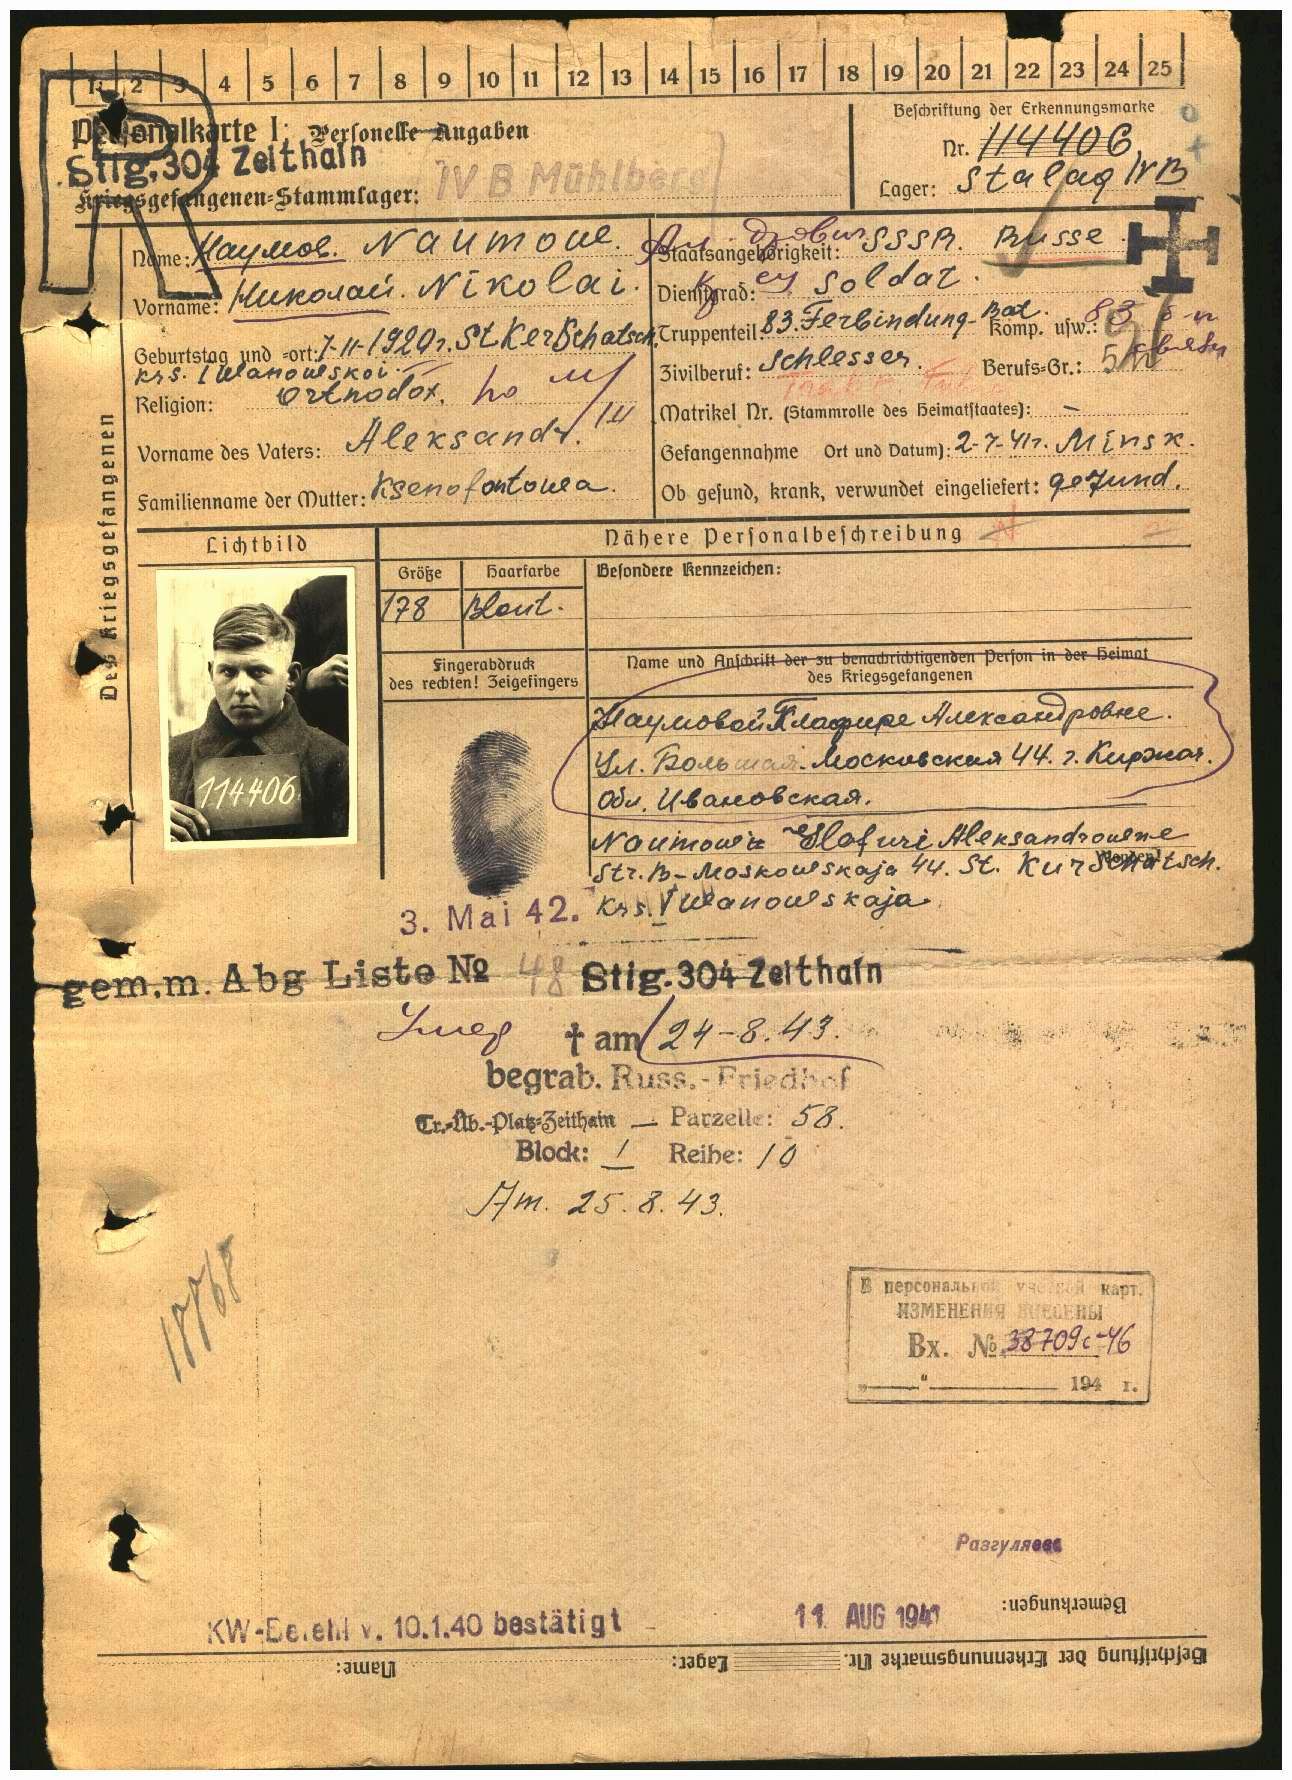 1 2 3 4 5 6 7 8 9 10 11 12 13 14 15 16 17 18 19 20 21 22 23 24 25
R
Personalkarte I: Personelle Angaben
Stlg. 304 Zeithain
Kriegsgefangenen-Stammlager: IV B Mühlberg
Beschriftung der Erkennungsmarke
Nr. 114406
Lager: Stalag IVB
Des Kriegsgefangenen
Name: Наумов. Naumow.
Vorname: Николай. Nikolai.
Geburtstag und -ort: 7-11-1920г. St Kerschatsch.
krs. Iwanowskoi.
Religion: Orthodox.
Vorname des Vaters: Aleksandr.
Familienname der Mutter: Ksenofontowa.
Staatsangehörigkeit: SSSR. Russe.
Dienstgrad: Soldat.
Truppenteil: 83. Ferbindung-Bat. Komp. usw.: 83
Zivilberuf: Schlesser. Berufs-Gr.: 5
Matrikel Nr. (Stammrolle des Heimatstaates): –
Gefangennahme Ort und Datum): 2-7-41г. Minsk.
Ob gesund, krank, verwundet eingeliefert: gesund.
Lichtbild
114406.
Nähere Personalbeschreibung
Größe Haarfarbe Besondere Kennzeichen:
178 Blont.
Fingerabdruck
des rechten! Zeigefingers
Name und Anschrift der zu benachrichtigenden Person in der Heimat
des Kriegsgefangenen
Наумовой Глафире Александровне.
Ул. Большая. Московская 44. г. Киржач.
Обл. Ивановская.
Naumowa Glafiri Aleksandrowne
Str. B-Moskowskaja 44. St. Kurschatsch.
krs. Iwanowskaja
3. Mai 42.
gem.m. Abg Liste № 48 Stlg. 304 Zeithain
† am 24-8.43.
begrab. Russ.-Friedhof
Tr.-Üb.-Platz-Zeithain — Parzelle: 58.
Block: 1 Reihe: 10
25.8.43.
В персональной учетной карт.
ИЗМЕНЕНИЯ ВНЕСЕНЫ
Вх. № 38709с-46
„ " 194 г.
Разгуляева
Bemerkungen:
KW-Befehl v. 10.1.40 bestätigt
11 AUG 1941
Beschriftung der Erkennungsmarke Nr. Lager: Name: